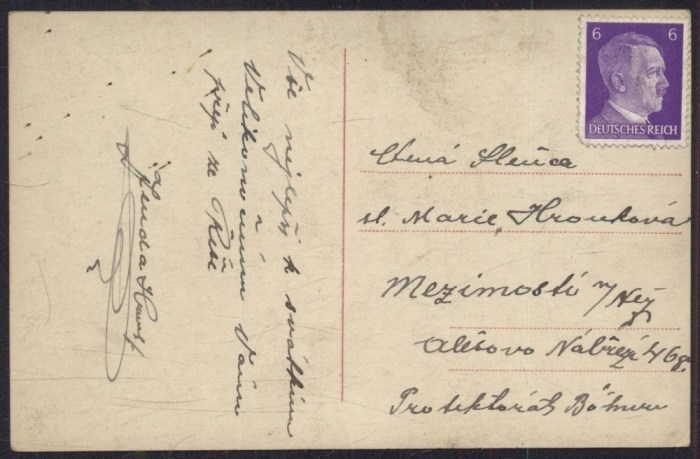 Vše nejlepší k svátkům
Velikonočním Vám
přeje ze Říše
Jenda
6 6
DEUTSCHES REICH
Ctená Slečna
sl. Marie Hronková
Mezimostí n/Než
Alešovo Nábřeží
Protektorát Böhmen